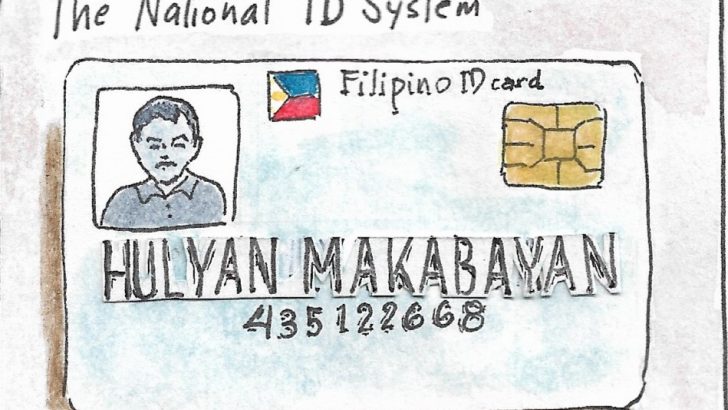 The National ID System
Filipino ID card
HULYAN MAKABAYAN
435122668